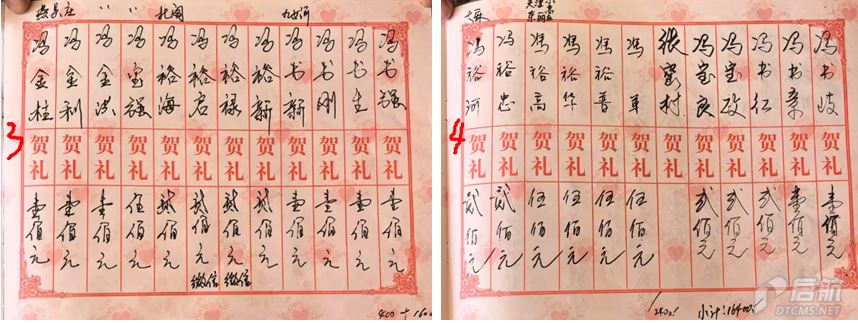 燕吴庄 〃 〃 北阁 九女河
3
冯书强 贺礼 壹佰元
冯书生 贺礼 壹佰元
冯书刚 贺礼 壹佰元
冯书新 贺礼 壹佰元
冯裕新 贺礼 贰佰元
冯裕禄 贺礼 贰佰元 微信
冯裕启 贺礼 贰佰元 微信
冯裕海 贺礼 贰佰元
冯宝强 贺礼 伍佰元
冯金洪 贺礼 壹佰元
冯金利 贺礼 壹佰元
冯金桂 贺礼 壹佰元
天津小
东丽
4
冯书岐 贺礼 壹佰元
冯书章 贺礼 壹佰元
冯书仁 贺礼 贰佰元
冯宝政 贺礼 贰佰元
冯宝良 贺礼 贰佰元
张宝村 贺礼
冯军 贺礼 伍佰元
冯裕普 贺礼 伍佰元
冯裕华 贺礼 伍佰元
冯裕高 贺礼 伍佰元
冯裕忠 贺礼 贰佰元
冯裕河 贺礼 贰佰元
小计:16400
启新
DTCMS.NET